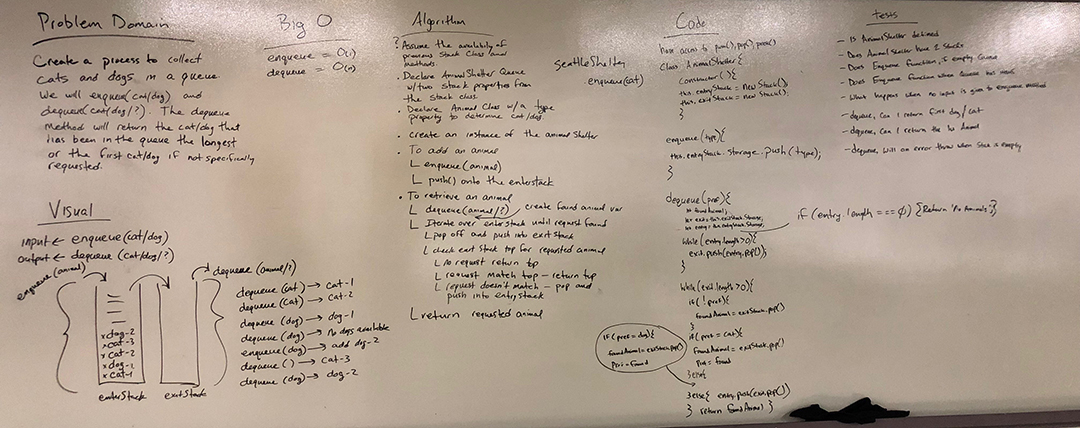 Problem Domain
Create a process to collect
cats and dogs in a queue.
We will enqueue(cat/dog) and
dequeue(cat/dog/?). The dequeue
method will return the cat/dog that
has been in the queue the longest
or the first cat/dog if not specifically
requested.
Visual
input ← enqueue(cat/dog)
output ← dequeue(cat/dog/?)
enqueue(animal)
dequeue(animal/?)
x dog-2
x cat-3
x cat-2
x dog-1
x cat-1
enterStack
exitStack
Big O
enqueue = O(1)
dequeue = O(n)
dequeue(cat) → cat-1
dequeue(cat) → cat-2
dequeue(dog) → dog-1
dequeue(dog) → no dogs available
enqueue(dog) → add dog-2
dequeue() → cat-3
dequeue(dog) → dog-2
Algorithm
Assume the availability of
previous Stack Class and
methods
Declare AnimalShelter Queue
w/two stack properties from
the stack class
Declare Animal Class w/a type
property to determine cat/dog.
create an instance of the animal shelter
To add an animal
enqueue(animal)
push() onto the enterstack
To retrieve an animal
dequeue(animal/?) create found animal var
Iterate over enterstack until request found
pop off and push into exitstack
check exit stack top for requested animal
no request return top
request match top - return top
request doesn't match - pop and
push into entrystack
return requested animal
seattleShelter
.enqueue(cat)
Code
have access to push(), pop(), peek()
class AnimalShelter {
constructor(){
this.entryStack = new Stack();
this.exitStack = new Stack();
}
}
enqueue(type){
this.entryStack.storage.push(type);
}
dequeue(pref){
let foundAnimal;
while(entry.length>0){
exit.push(entry.pop());
}
if(entry.length === 0) {Return 'No Animals';}
while(exit.length>0){
if(!pref){
foundAnimal = exitStack.pop()
}
if(pref = cat){
foundAnimal = exitStack.pop()
}else{
if(pref = dog){
foundAnimal = exitStack.pop()
}else{ entry.push(exit.pop())
} return foundAnimal }
Tests
- Is AnimalShelter defined
- Does AnimalShelter have 2 Stacks
- Does Enqueue function, is empty Queue
- Does Enqueue function when Queue has
- What happens when no input is given to enqueue method
- dequeue, Can I return first dog/cat
- dequeue, Can I return the 1st Animal
- dequeue, Will an error throw when Stack is empty